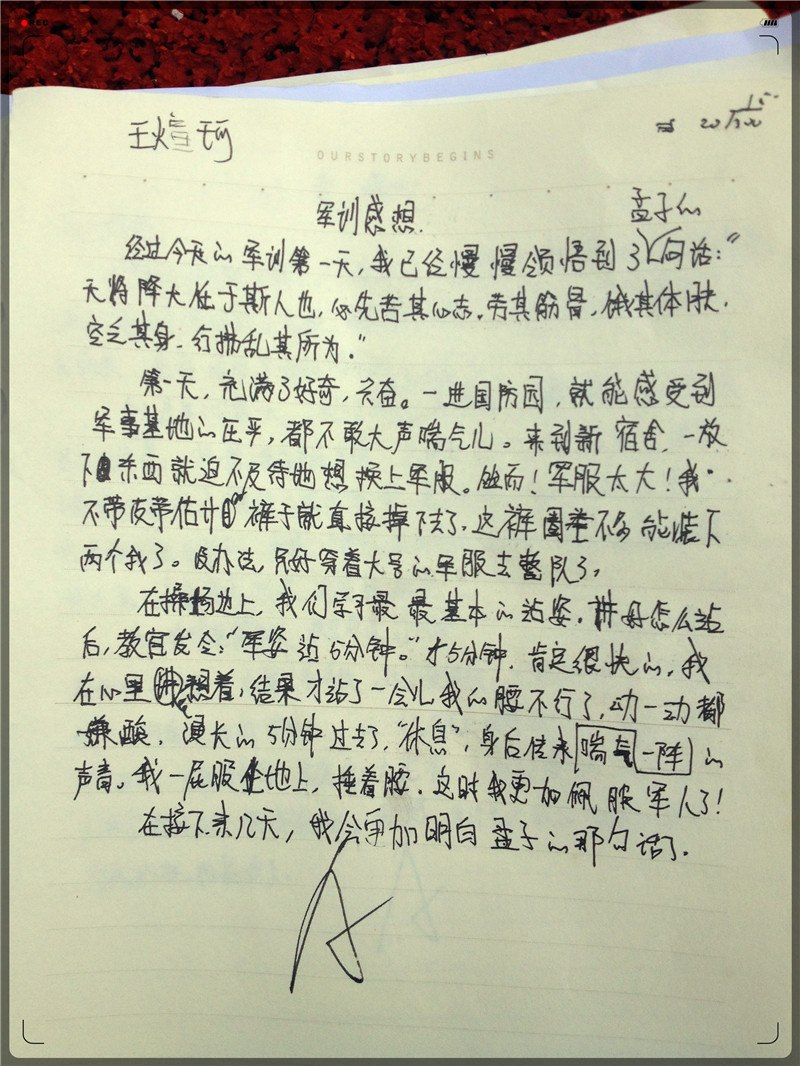 王煊珂
OURSTORYBEGINS
军训感想.
孟子的
经过今天的军训第一天,我已经慢慢领悟到了句话:“
天将降大任于斯人也,必先苦其心志,劳其筋骨,饿其体肤,
空乏其身,行拂乱其所为。”
第一天,充满了好奇,兴奋。一进国防园,就能感受到
军事基地的庄严,都不敢大声喘气儿。来到新宿舍,一放
下东西就迫不及待地想换上军服。然而!军服太大!我
不带皮带估计裤子就直接掉下去了,这裤圈差不多能装下
两个我了。没办法,只好穿着大号的军服去整队了。
在操场边上,我们学习最最基本的站姿,讲好怎么站
后,教官发令:“军姿站5分钟。”才5分钟,肯定很快的,我
在心里想着,结果才站了一会儿我的腰不行了,动一动都
嫌酸,漫长的5分钟过去了,“休息”,身后传来喘气一阵的
声音。我一屁股坐地上,捶着腰,这时我更加佩服军人了!
在接下来几天,我会更加明白孟子的那句话了.
A